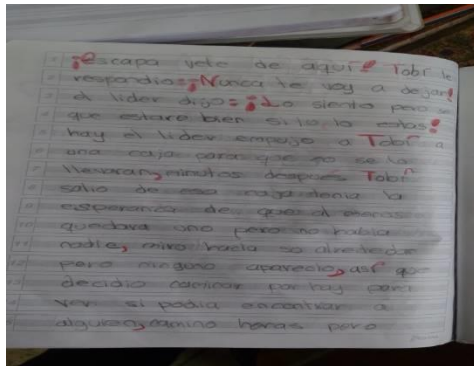 ¡Escapa vete de aquí! Tobí le
respondio: ¡Nunca te voy a dejar!
el lider dijo: ¡Lo siento pero se
que estare bien si tu lo estas!
hay el lider empujo a Tobí a
una caja para que no se lo
llevaran, minutos después Tobí
salio de esa caja tenia la
esperanza de que al menos
quedara uno pero no habia
nadie, miro hacia su alrededor
pero ninguno aparecio, así que
decidio caminar por hay para
ver si podia encontrar a
alguien, camino horas pero